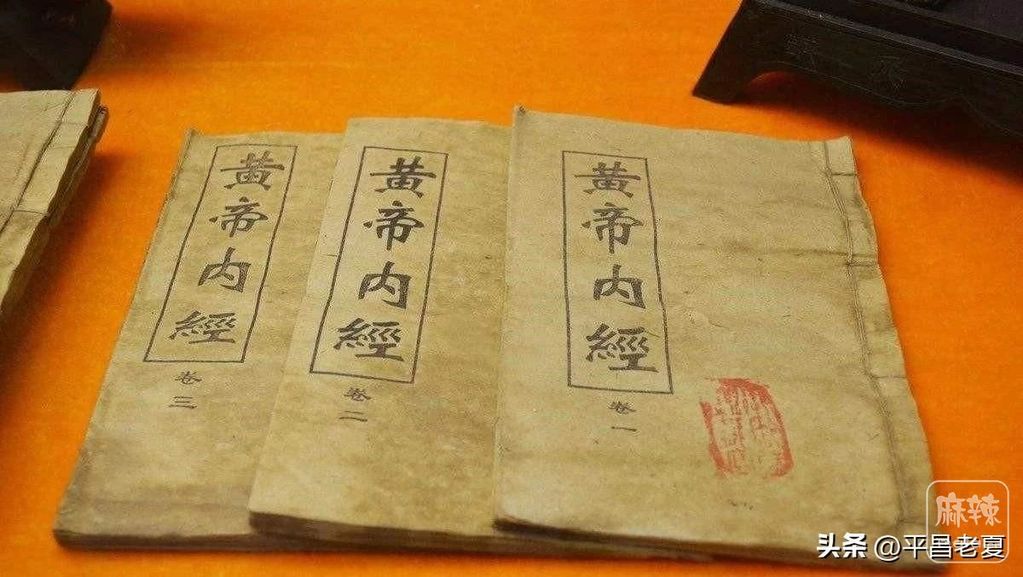 黄帝内經
卷一
黄帝内經
卷二
黄帝内經
卷三
麻辣
头条 @平昌老夏